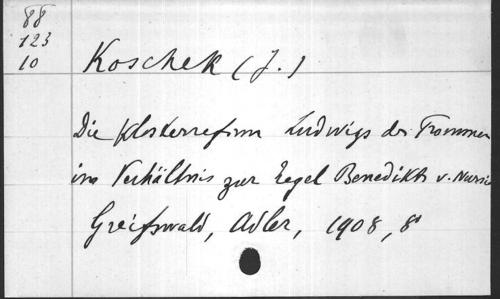 88
123
10
Koschek (J.)
Die Klosterreform Ludwigs des Frommen
im Verhältnis zur Regel Benedikts v. Nursia
Greifswald, Adler, 1908, 8°